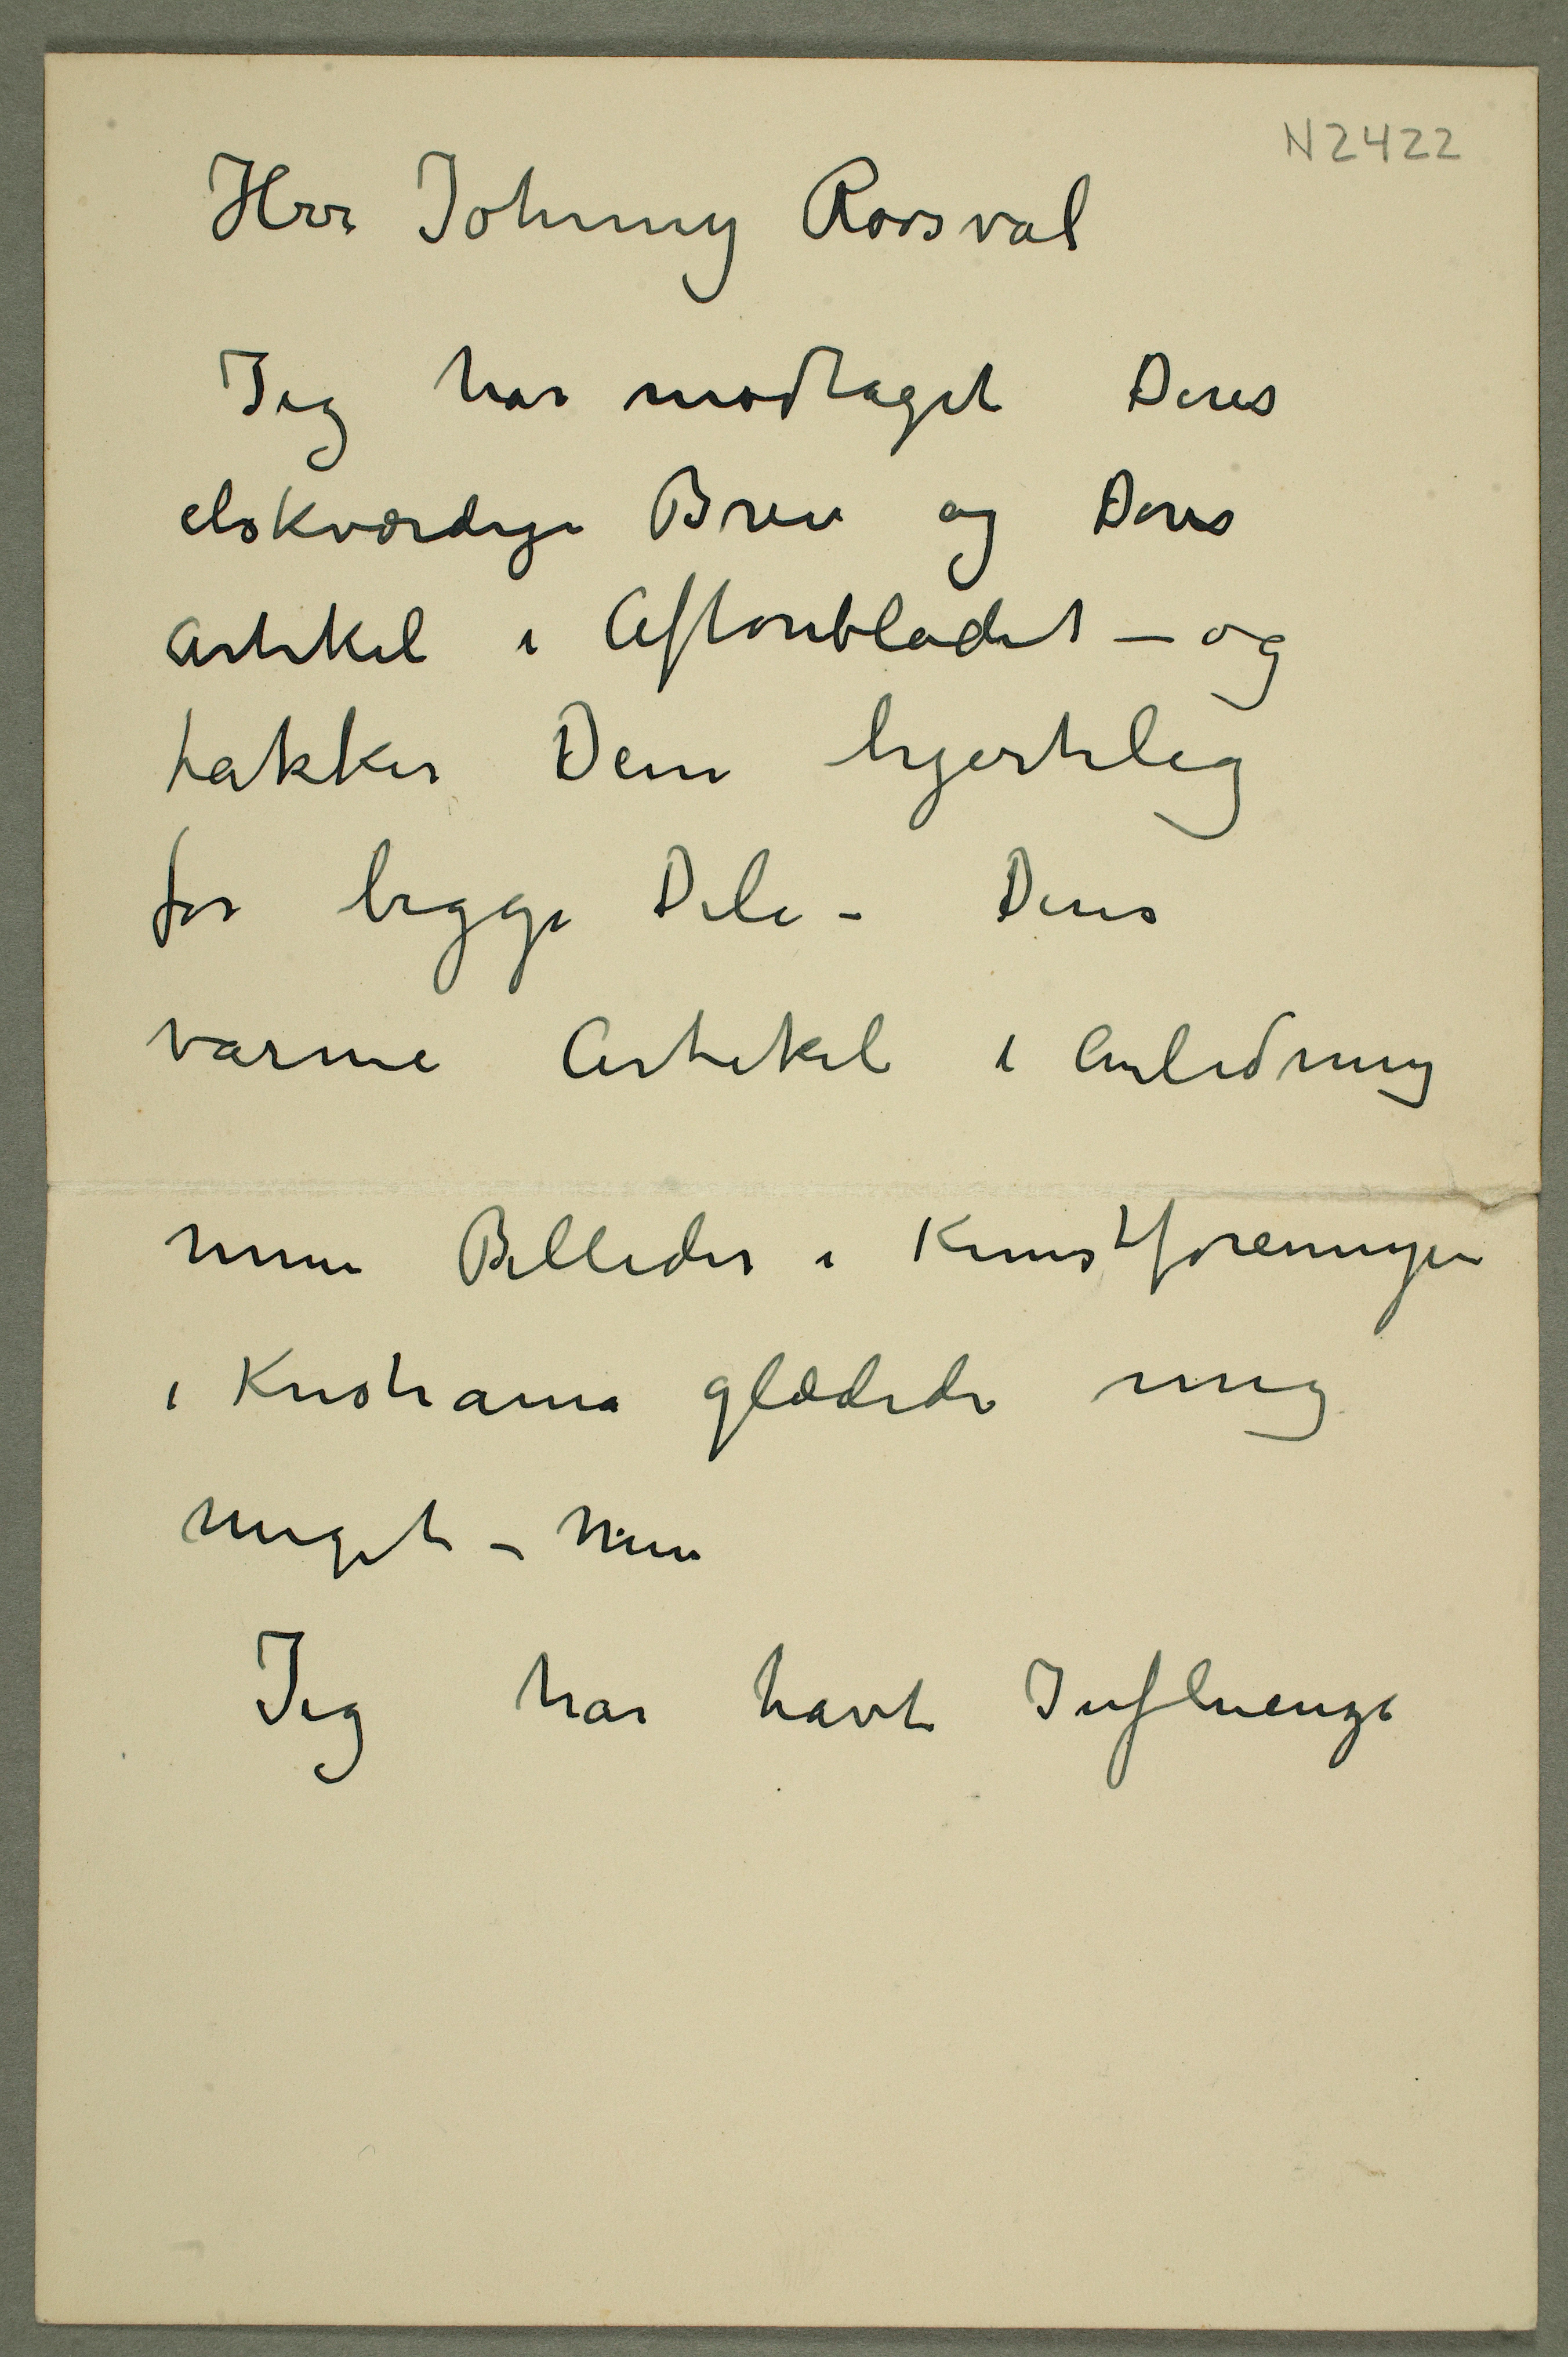 N2422
Herr Johnny Roosval
Jeg har modtaget Deres
elskværdige Brev og Deres
Artikel i Aftonbladet – og
takker Dem hjertelig
for begge Dele – Deres
varme Artikel i Anledning
mine Billeder i Kunstforeningen
i Kristiania glædede mig
meget – Min
Jeg har havt Influenza